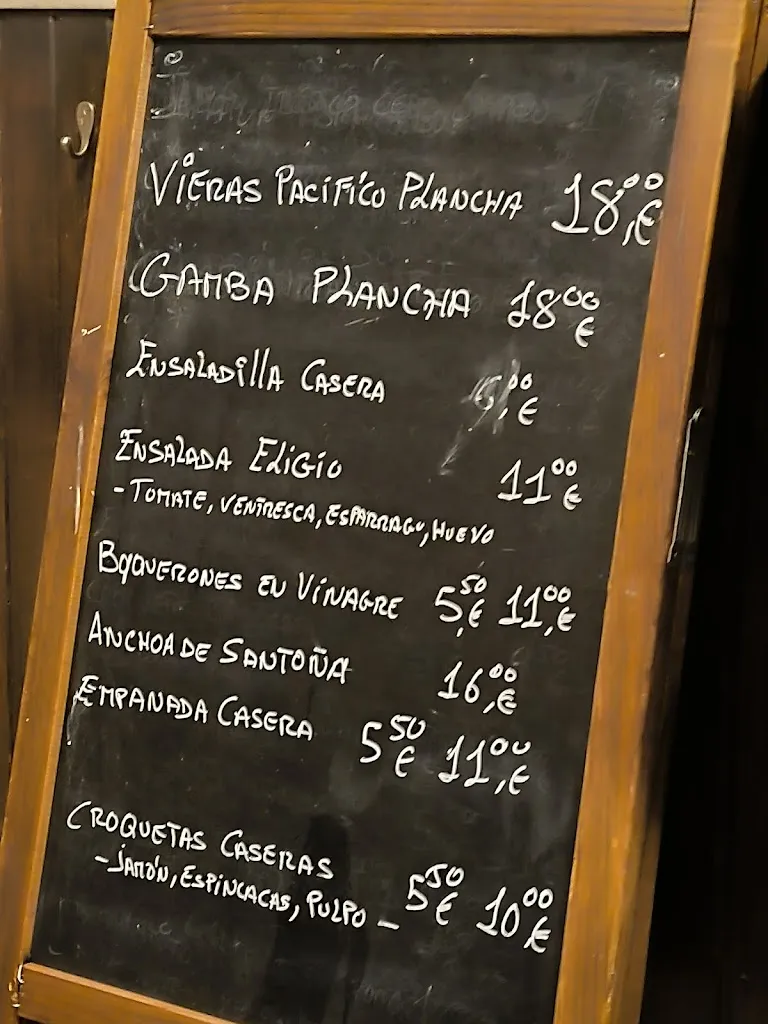 VIEIRAS PACÍFICO PLANCHA 18,00 €
GAMBA PLANCHA 18,00 €
ENSALADILLA CASERA ,00 €
ENSALADA ELIGIO 11,00 €
- TOMATE, VENTRESCA, ESPÁRRAGO, HUEVO
BOQUERONES EN VINAGRE 5,50 € 11,00 €
ANCHOA DE SANTOÑA 16,00 €
EMPANADA CASERA 5,50 € 11,00 €
CROQUETAS CASERAS
- JAMÓN, ESPINACAS, PULPO - 5,50 € 10,00 €